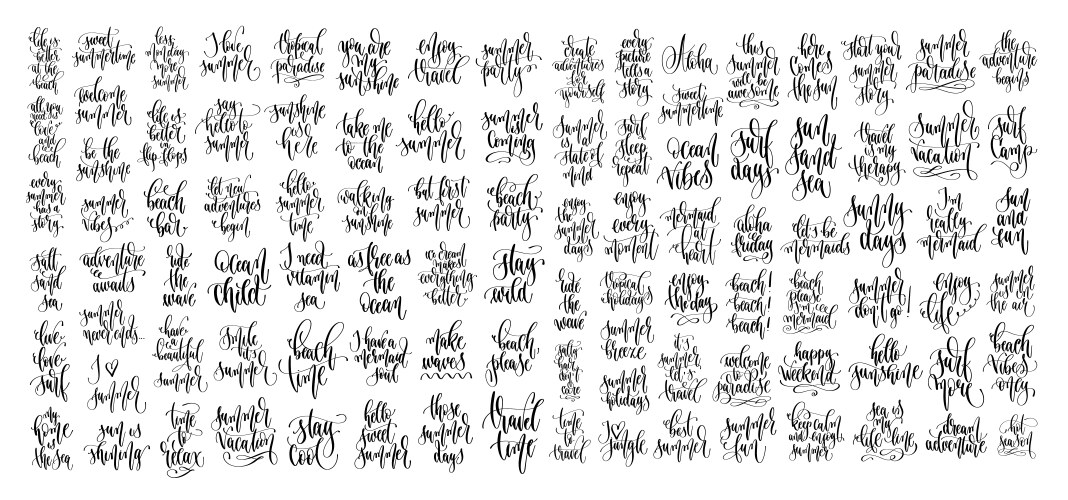 life is
better
at the
beach
all you
need is
love
and a
beach
every
summer
has a
story
salt
and
sea
live
love
surf
my
home
is
the sea
sweet
summertime
welcome
summer
be the
sunshine
summer
vibes
adventure
awaits
summer
never ends...
I
summer
sun is
shining
less
monday
more
summer
life is
better
in
flip flops
beach
bar
ride
the
wave
have
a
beautiful
summer
time
to
relax
I love
summer
say
hello to
summer
let new
adventures
begin
Ocean
child
Smile
it's
Summer
Summer
Vacation
tropical
paradise
sunshine
is
here
hello
summer
time
I need
vitamin
sea
beach
time
stay
cool
you are
my
sunshine
take me
to the
ocean
walking
on
sunshine
as free as
the
Ocean
I have a
mermaid
soul
hello
sweet
summer
enjoy
travel
hello
summer
but first
summer
we dream
makest
everything
better
make
waves
those
summer
days
summer
party
summer
is
coming
beach
party
stay
wild
beach
please
travel
time
create
adventures
for
yourself
Summer
is a
state of
mind
enjoy
the
summer
days
ride
the
wave
salty
but
don't
care
time
to
travel
every
picture
tells a
story
surf
sleep
repeat
enjoy
every
moment
tropical
holidays
summer
breeze
summer
holidays
I
jungle
Aloha
sweet
summertime
Ocean
Vibes
mermaid
at
heart
enjoy
the day
it's
summer
let's
travel
best
summer
this
summer
will be
awesome
surf
days
aloha
friday
beach!
beach!
beach!
welcome
to
paradise
summer
fun
here
comes
the sun
sun
sand
sea
let's be
mermaids
beach
please
I'm a
mermaid
happy
weekend
keep calm
and enjoy
summer
start your
summer
story
travel
is my
therapy
Sunny
days
Summer
don't go!
hello
sunshine
sea is
my
life line
summer
paradise
Summer
Vacation
I'm
really
mermaid
enjoy
life
surf
more
dream
adventure
the
adventure
begins
surf
Camp
sun
and
fun
summer
beach
vibes
only
hot
season